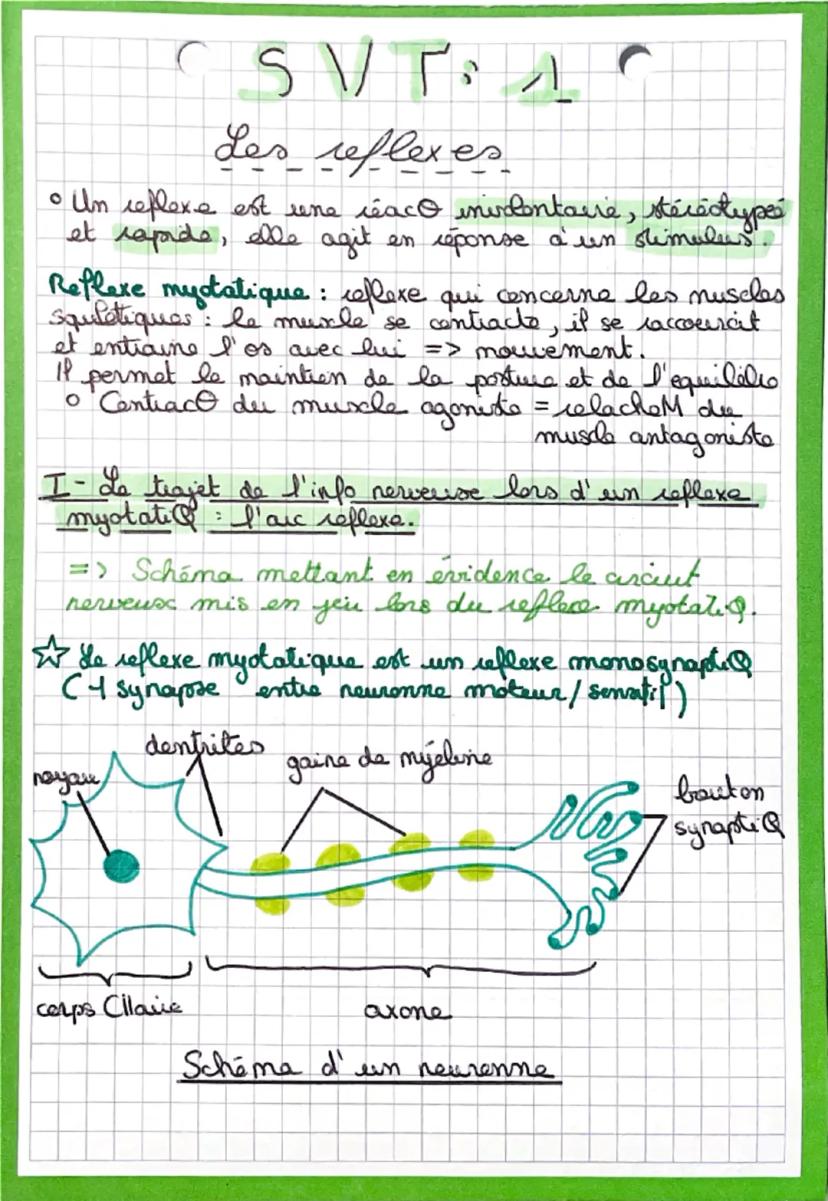 SVT: 1
Les reflexes
° Un reflexe est une réacΘ involontaire, stéréotypée
et rapide, elle agit en réponse à un stimulus.
Reflexe myotatique : reflexe qui concerne les muscles
squelétiques : le muscle se contracte, il se raccourcit
et entraine l'os avec lui => mouvement.
Il permet le maintien de la posture et de l'equilibre
° ContracΘ du muscle agoniste = relacheM du
muscle antagoniste
I - Le trajet de l'info nerveuse lors d'un reflexe
myotatiQ : l'arc reflexe.
=> Schéma mettant en évidence le circuit
nerveux mis en jeu lors du reflexe myotatiQ.
☆ Le reflexe myotatique est un reflexe monosynaptiQ
(1 synapse entre neuronne moteur / sensitif)
dentrites
noyau
gaine de myéline
bouton
synaptiQ
corps Cllaire
axone
Schéma d'un neuronne